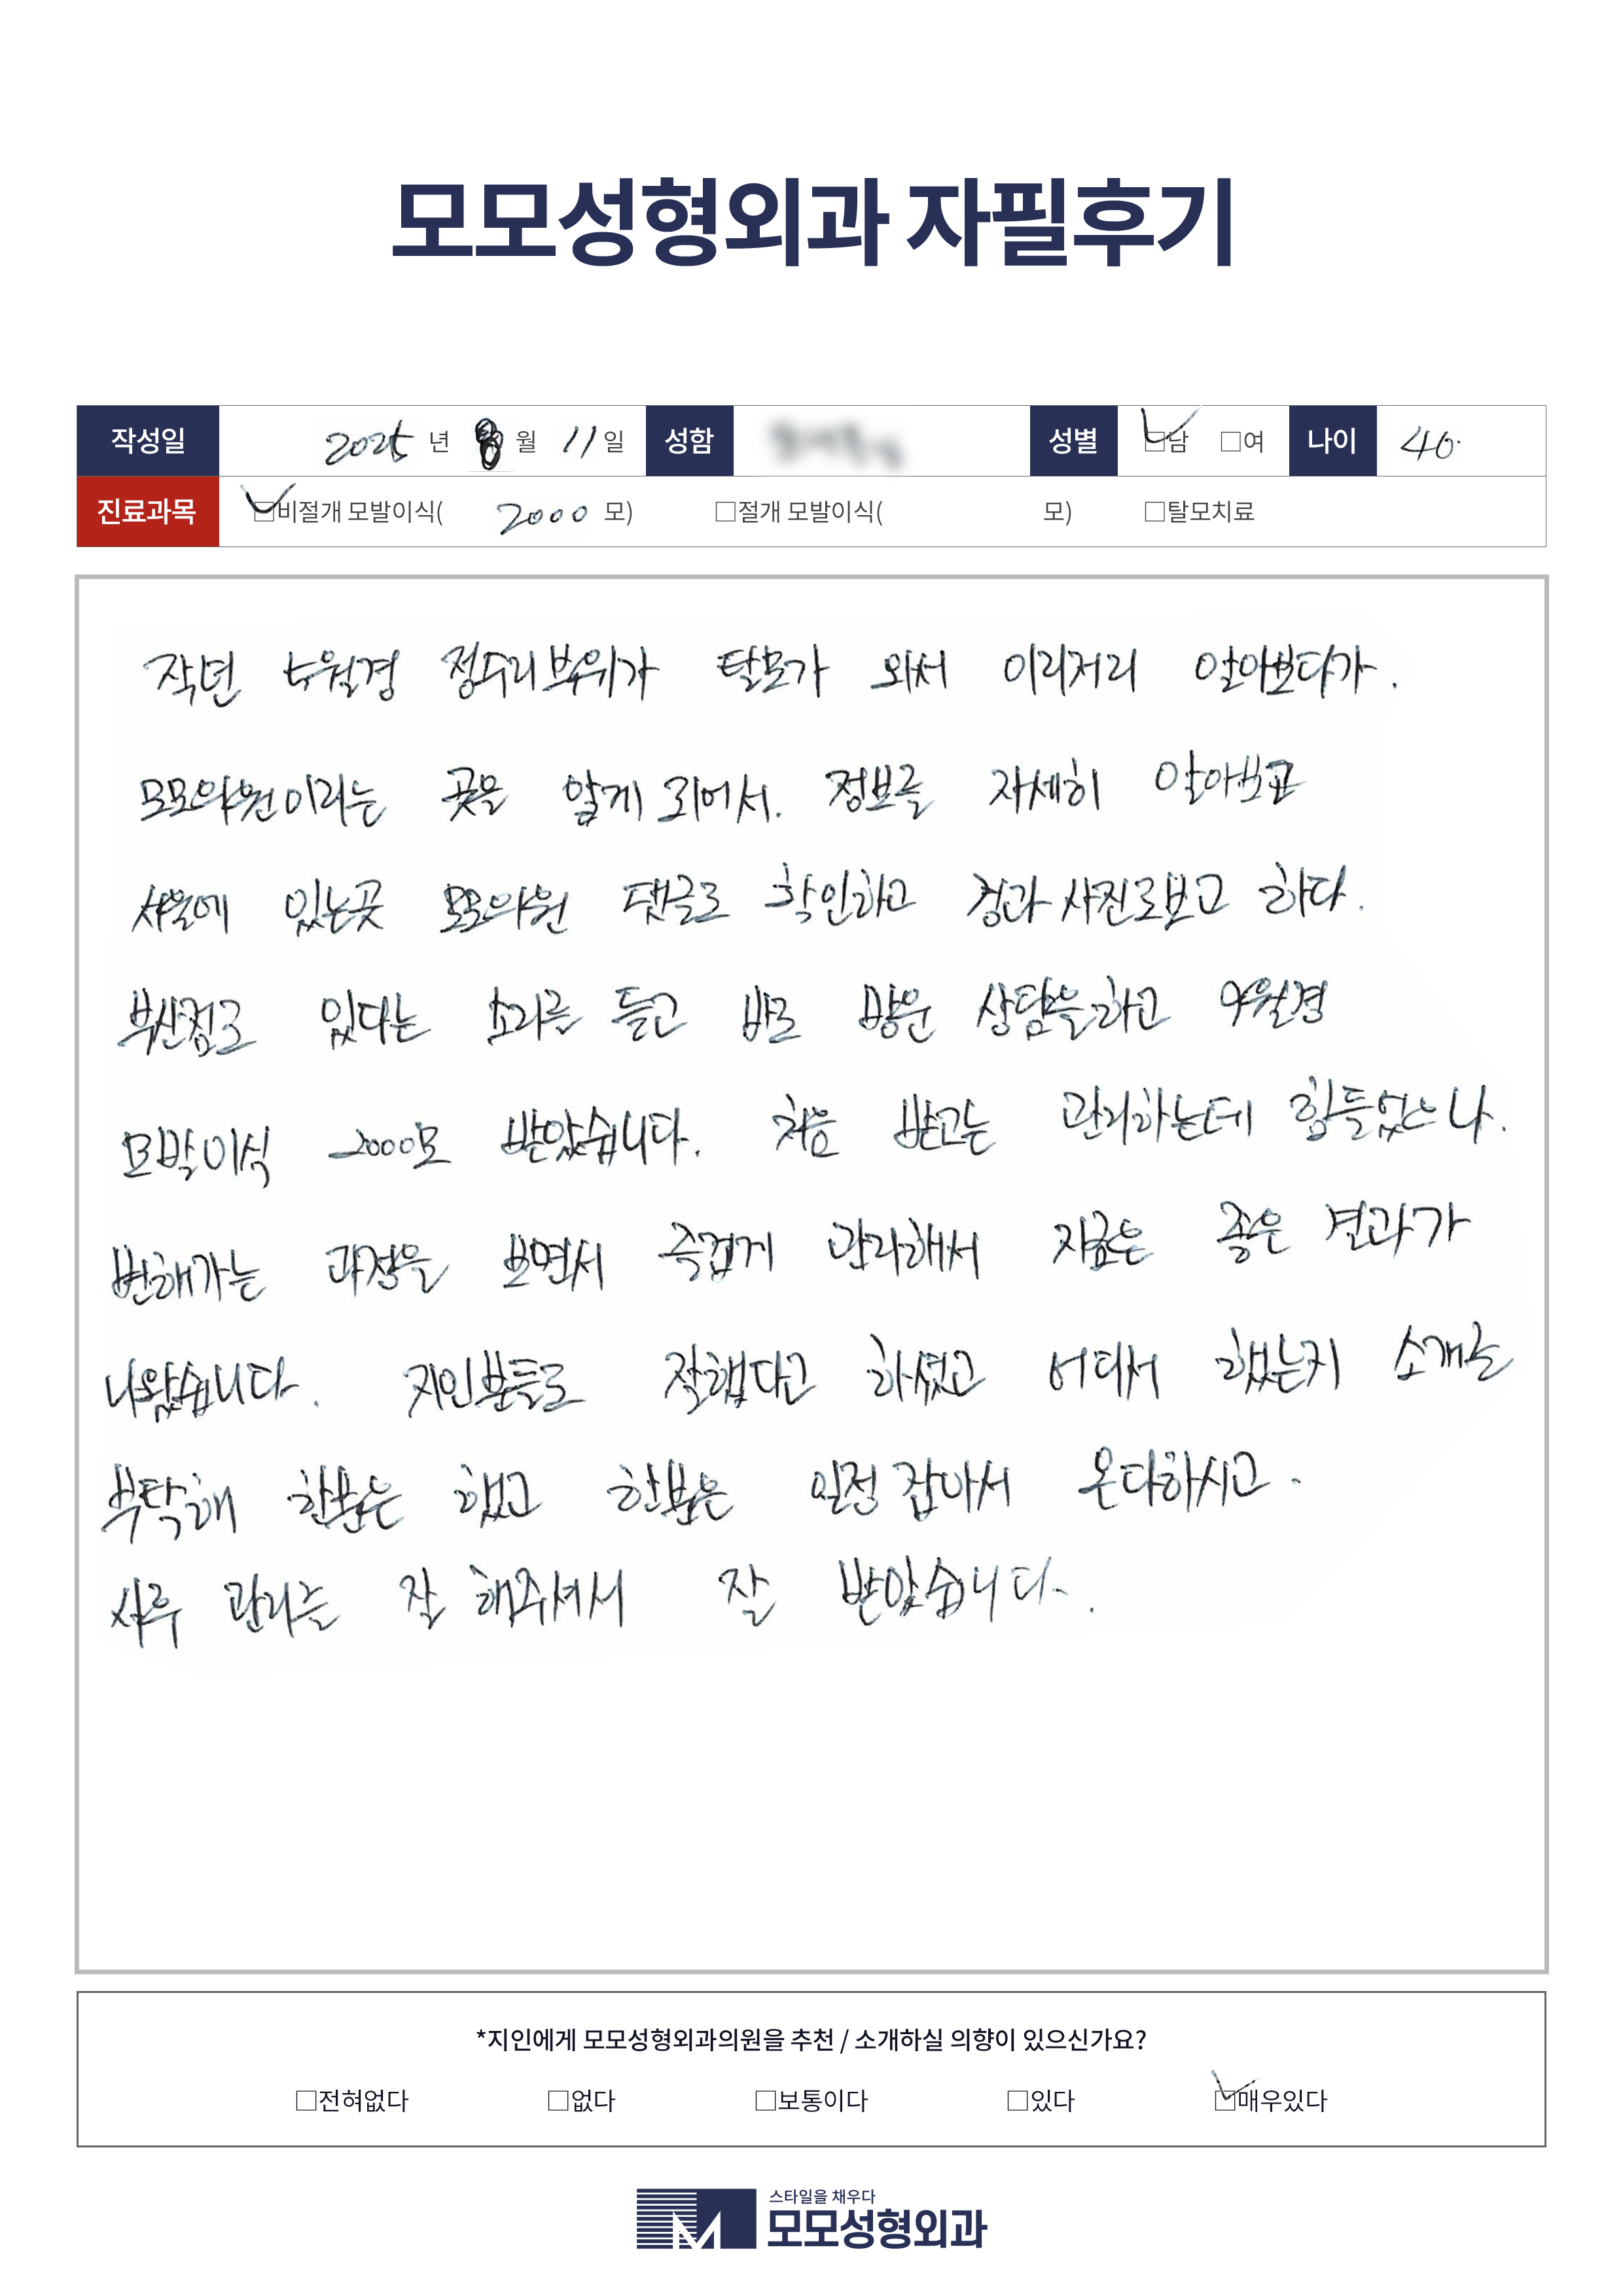 모모성형외과 자필후기
작성일 2025 년 8 월 11 일 성함 성별 □남 □여 나이 40.
진료과목 □비절개 모발이식( 2000 모) □절개 모발이식( 모) □탈모치료
작년 4월경 정수리부위가 탈모가 와서 이리저리 알아보다가.
모모의원이라는 곳을 알게 되어서. 정보를 자세히 알아보고
서울에 있는곳 모모의원 댓글로 확인하고 경과 사진로보고 하다.
부산점로 있다는 소리를 듣고 바로 방문 상담을하고 9월경
모발이식 2000모 받았습니다. 처음 받고는 관리하는데 힘들었으나.
변해가는 과정을 보면서 즉겁게 관리해서 지금은 좋은 결과가
나왔습니다. 지인분들로 잘했다고 하셨고 어디서 했는지 소개를
부탁해 한분은 했고 한분은 일정 잡아서 온다하시고.
사후 관리를 잘 해주셔서 잘 받았습니다.
*지인에게 모모성형외과의원을 추천 / 소개하실 의향이 있으신가요?
□전혀없다 □없다 □보통이다 □있다 □매우있다
스타일을 채우다
모모성형외과